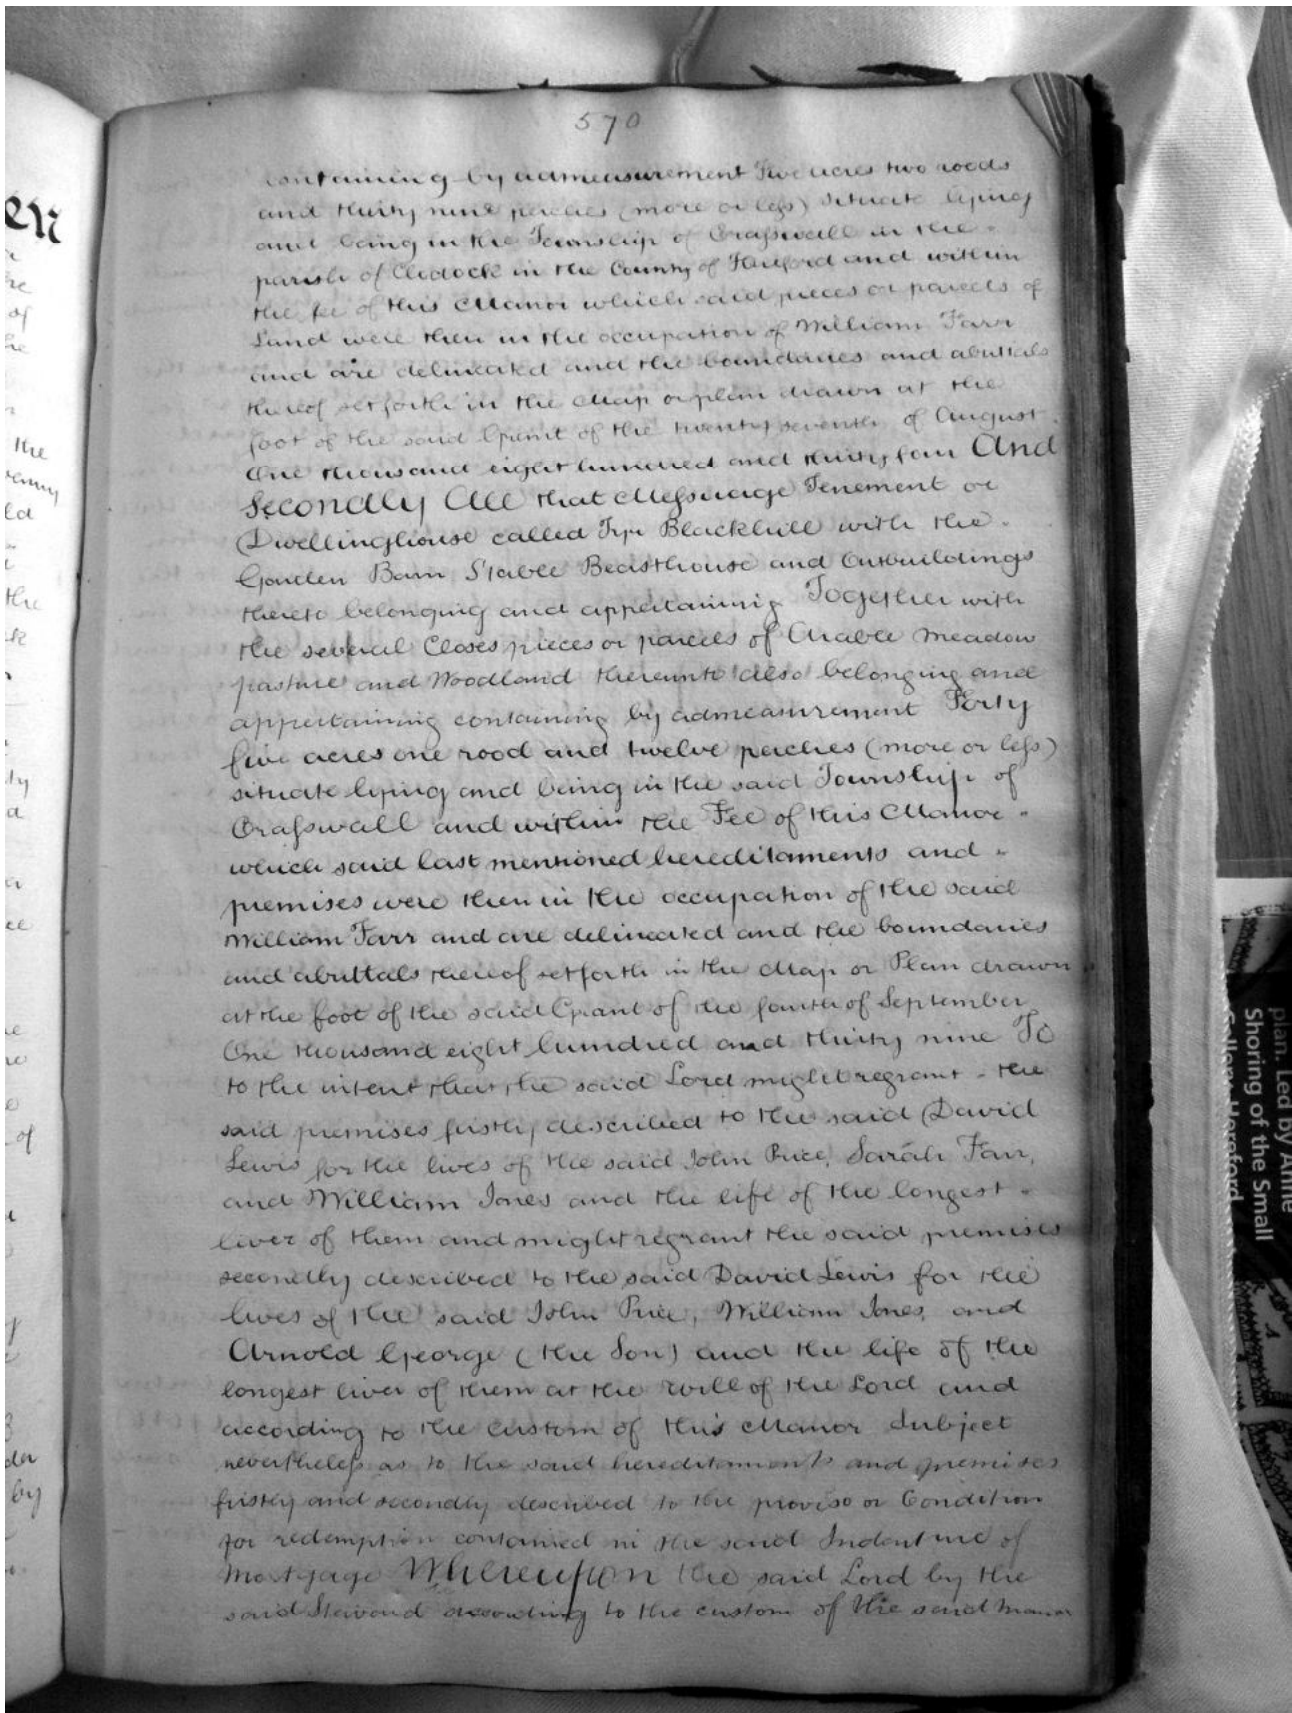 570
containing by admeasurement Five acres two roods
and thirty nine perches (more or less) situate lying
and being in the Township of Crasswall in the
parish of Clodock in the County of Hereford and within
the fee of this Manor which said pieces or parcels of
Land were then in the occupation of William Farr
and are delineated and the boundaries and abuttals
thereof set forth in the Map or plan drawn at the
foot of the said Grant of the twenty seventh of August
One thousand eight hundred and thirty four And
Secondly All that Messuage Tenement or
Dwellinghouse called Tyr Blackhill with the
Garden Barn Stable Beasthouse and Outbuildings
thereto belonging and appertaining Together with
the several Closes pieces or parcels of Arable meadow
pasture and Woodland thereunto also belonging and
appertaining containing by admeasurement Forty
five acres one rood and twelve perches (more or less)
situate lying and being in the said Township of
Crasswall and within the Fee of this Manor
which said last mentioned hereditaments and
premises were then in the occupation of the said
William Farr and are delineated and the boundaries
and abuttals thereof set forth in the Map or Plan drawn
at the foot of the said Grant of the fourth of September
One thousand eight hundred and thirty nine To
to the intent that the said Lord might regrant the
said premises firstly described to the said David
Lewis for the lives of the said John Price, Sarah Farr,
and William Jones and the life of the longest
liver of them and might regrant the said premises
secondly described to the said David Lewis for the
lives of the said John Price, William Jones, and
Arnold George (the Son) and the life of the
longest liver of them at the will of the Lord and
according to the custom of this Manor Subject
nevertheless as to the said hereditaments and premises
firstly and secondly described to the proviso or Condition
for redemption contained in the said Indenture of
Mortgage Whereupon the said Lord by the
said Steward according to the custom of the said manor
plan. Led by Anne
Shoring of the Small
Hereford